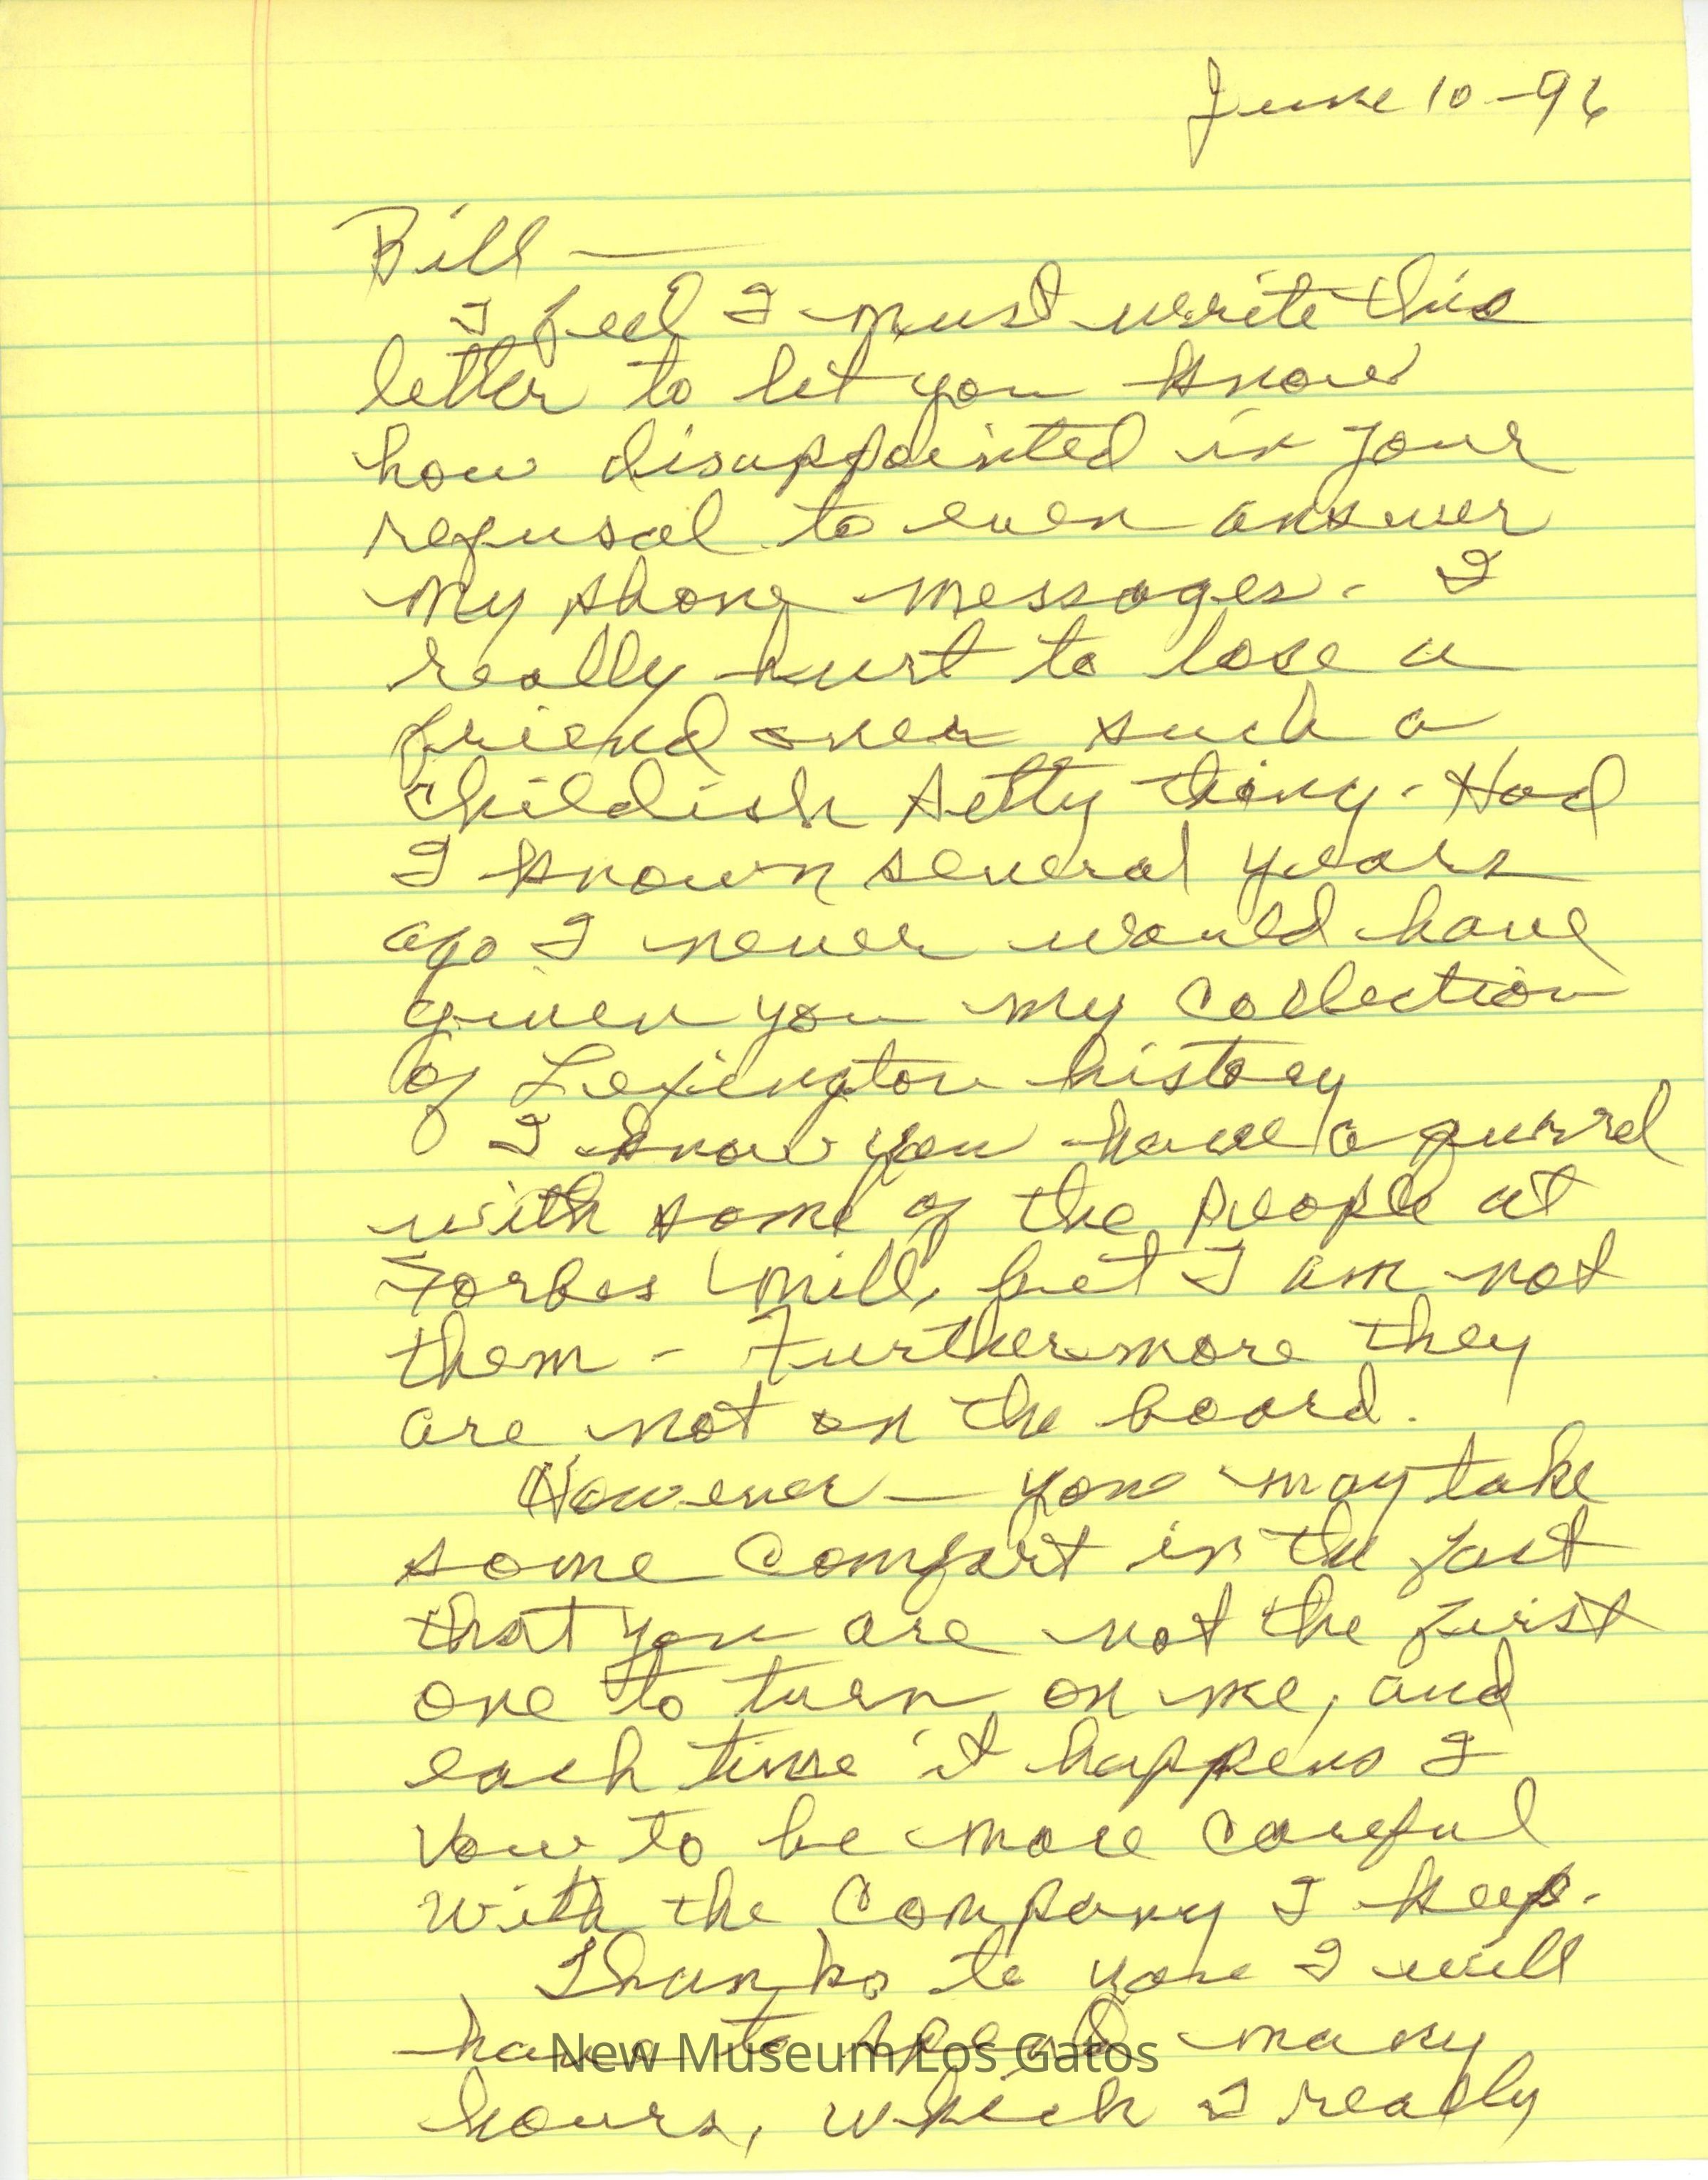 June 10-96
Bill —
I feel I must write this
letter to let you know
how disappointed in your
refusal to even answer
my phone messages. I
really hurt to lose a
friend over such a
childish petty thing. Had
I known several years
ago I never would have
given you my collection
of Lexington history
I know you have a quarrel
with some of the people at
Forbes Mill, but I am not
them - Furthermore they
are not on the board.
However — you may take
some comfort in the fact
that you are not the first
one to turn on me, and
each time it happens I
vow to be more careful
with the company I keep.
Thanks to you I will
have to spend many
New Museum Los Gatos
hours, which I really